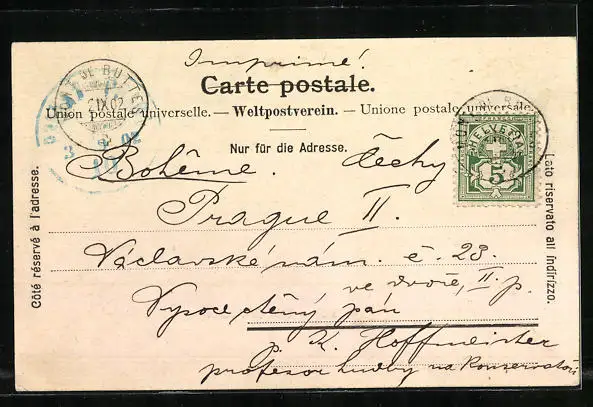 Imprimé!
Carte postale.
Union postale universelle. — Weltpostverein. — Unione postale universale
Nur für die Adresse.
Bohême. Čechy
Prague II.
Václavské nám. č. 23.
ve dvoře, II. p.
Vysoce ctěný pán
P. K. Hoffmeister
profesor hudby na Konservatoři
Côté réservé à l'adresse.
Lato riservato all' indirizzo.
DE BUTTES
2 IX 02
HELVETIA
5